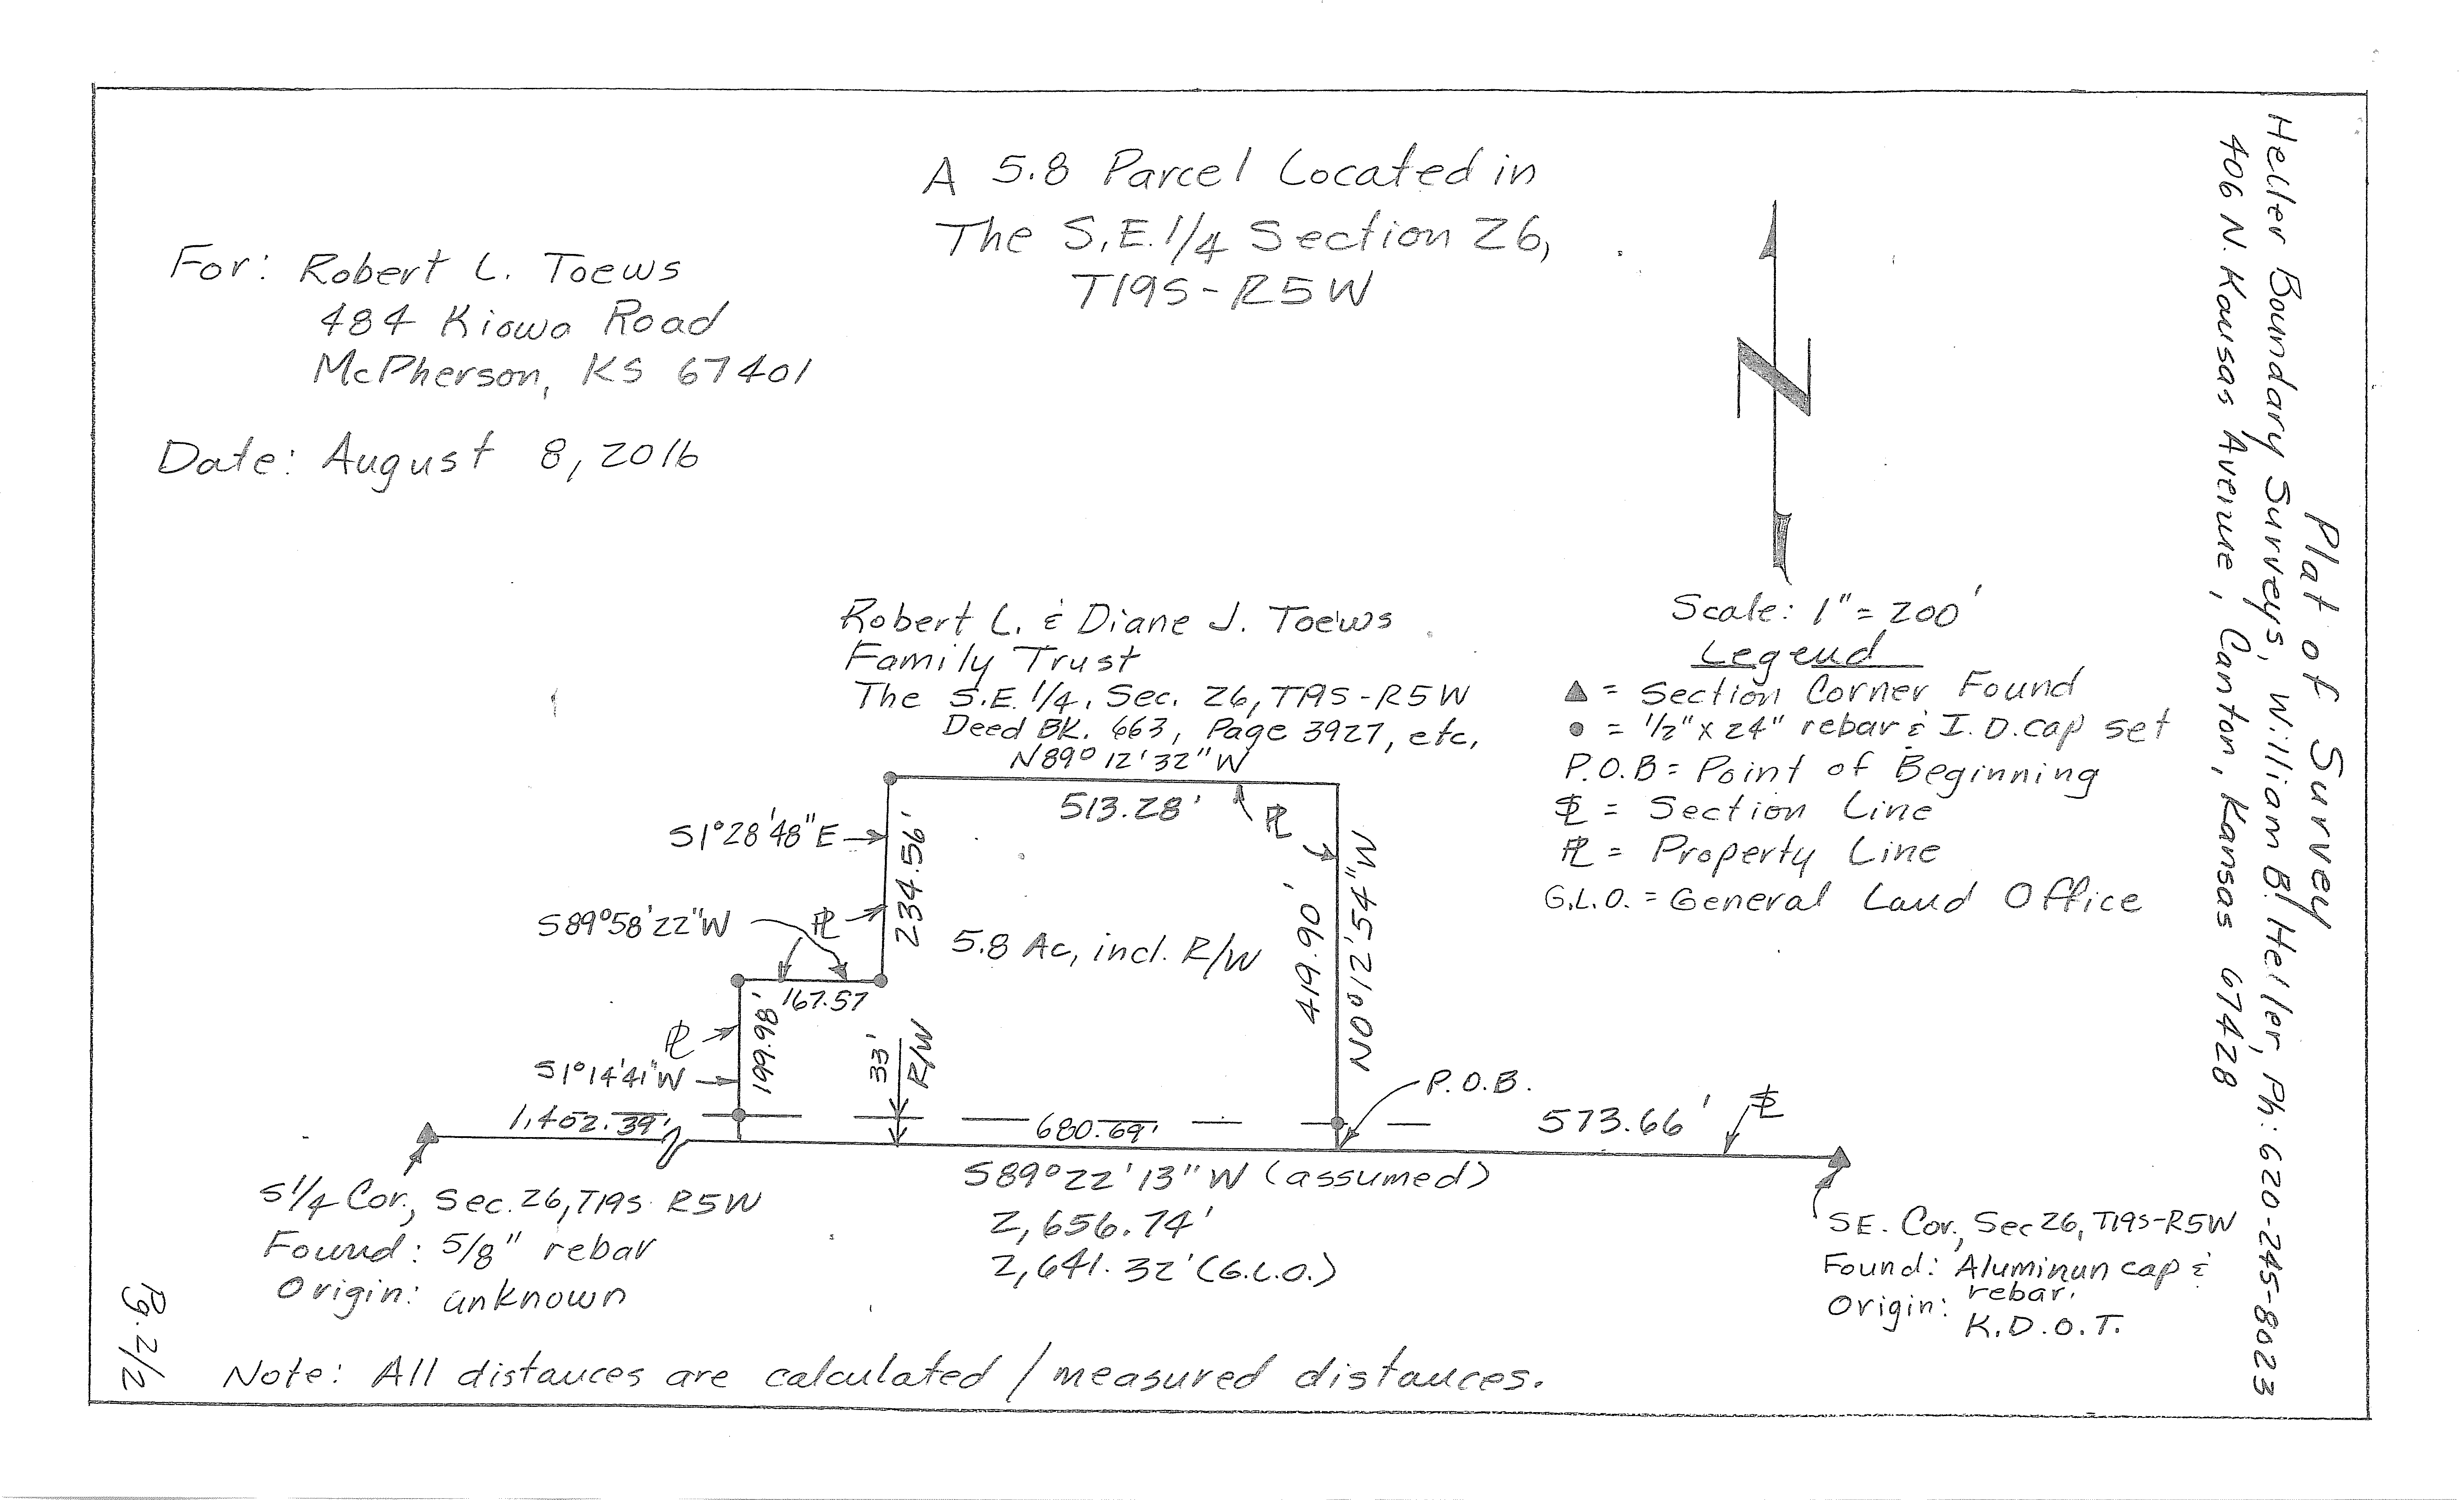 A 5.8 Parcel Located in
The S.E. 1/4 Section 26,
T19S-R5W
For: Robert L. Toews
484 Kiowa Road
McPherson, KS 67401
Date: August 8, 2016
N
Scale: 1" = 200'
Legend
▲ = Section Corner Found
● = 1/2" x 24" rebar & I.D. cap set
P.O.B = Point of Beginning
SL = Section Line
PL = Property Line
G.L.O. = General Land Office
Robert L. & Diane J. Toews
Family Trust
The S.E. 1/4, Sec. 26, T19S-R5W
Deed BK. 663, Page 3927, etc,
N89° 12' 32" W
513.28'
PL
S1°28'48"E
234.56'
S89°58'22"W
PL
5.8 Ac, incl. R/W
419.90'
N0°12'54"W
167.57
199.98'
PL
33'
R/W
S1°14'41"W
P.O.B.
1,402.39'
680.69'
573.66'
SL
S89°22'13"W (assumed)
2,656.74'
2,641.32' (G.L.O.)
S1/4 Cor., Sec. 26, T19S R5W
Found: 5/8" rebar
Origin: unknown
SE. Cor., Sec 26, T19S-R5W
Found: Aluminun cap &
rebar.
Origin: K.D.O.T.
Note: All distances are calculated / measured distances.
Pg. 2/2
Plat of Survey
Heller Boundary Surveys, William B. Heller, Ph: 620-245-8023
406 N. Kansas Avenue, Canton, Kansas 67428